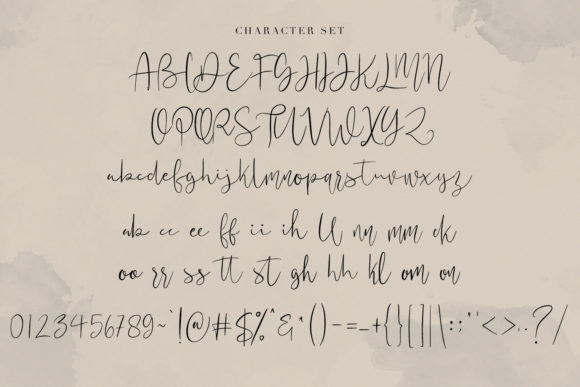 CHARACTER SET
ABCDEFGHIJKLMN
OPQRSTUVWXYZ
abcdefghijklmnopqrstuvwxyz
ab cc ee ff ii ih ll nn mm ck
oo rr ss tt st gh hh kl om on
0123456789~`!@#$%^&*()-=_+{}[]|\:;"'<>,.?/